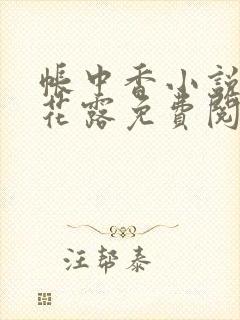 帳中香小說
花露免費閱
汪幫泰